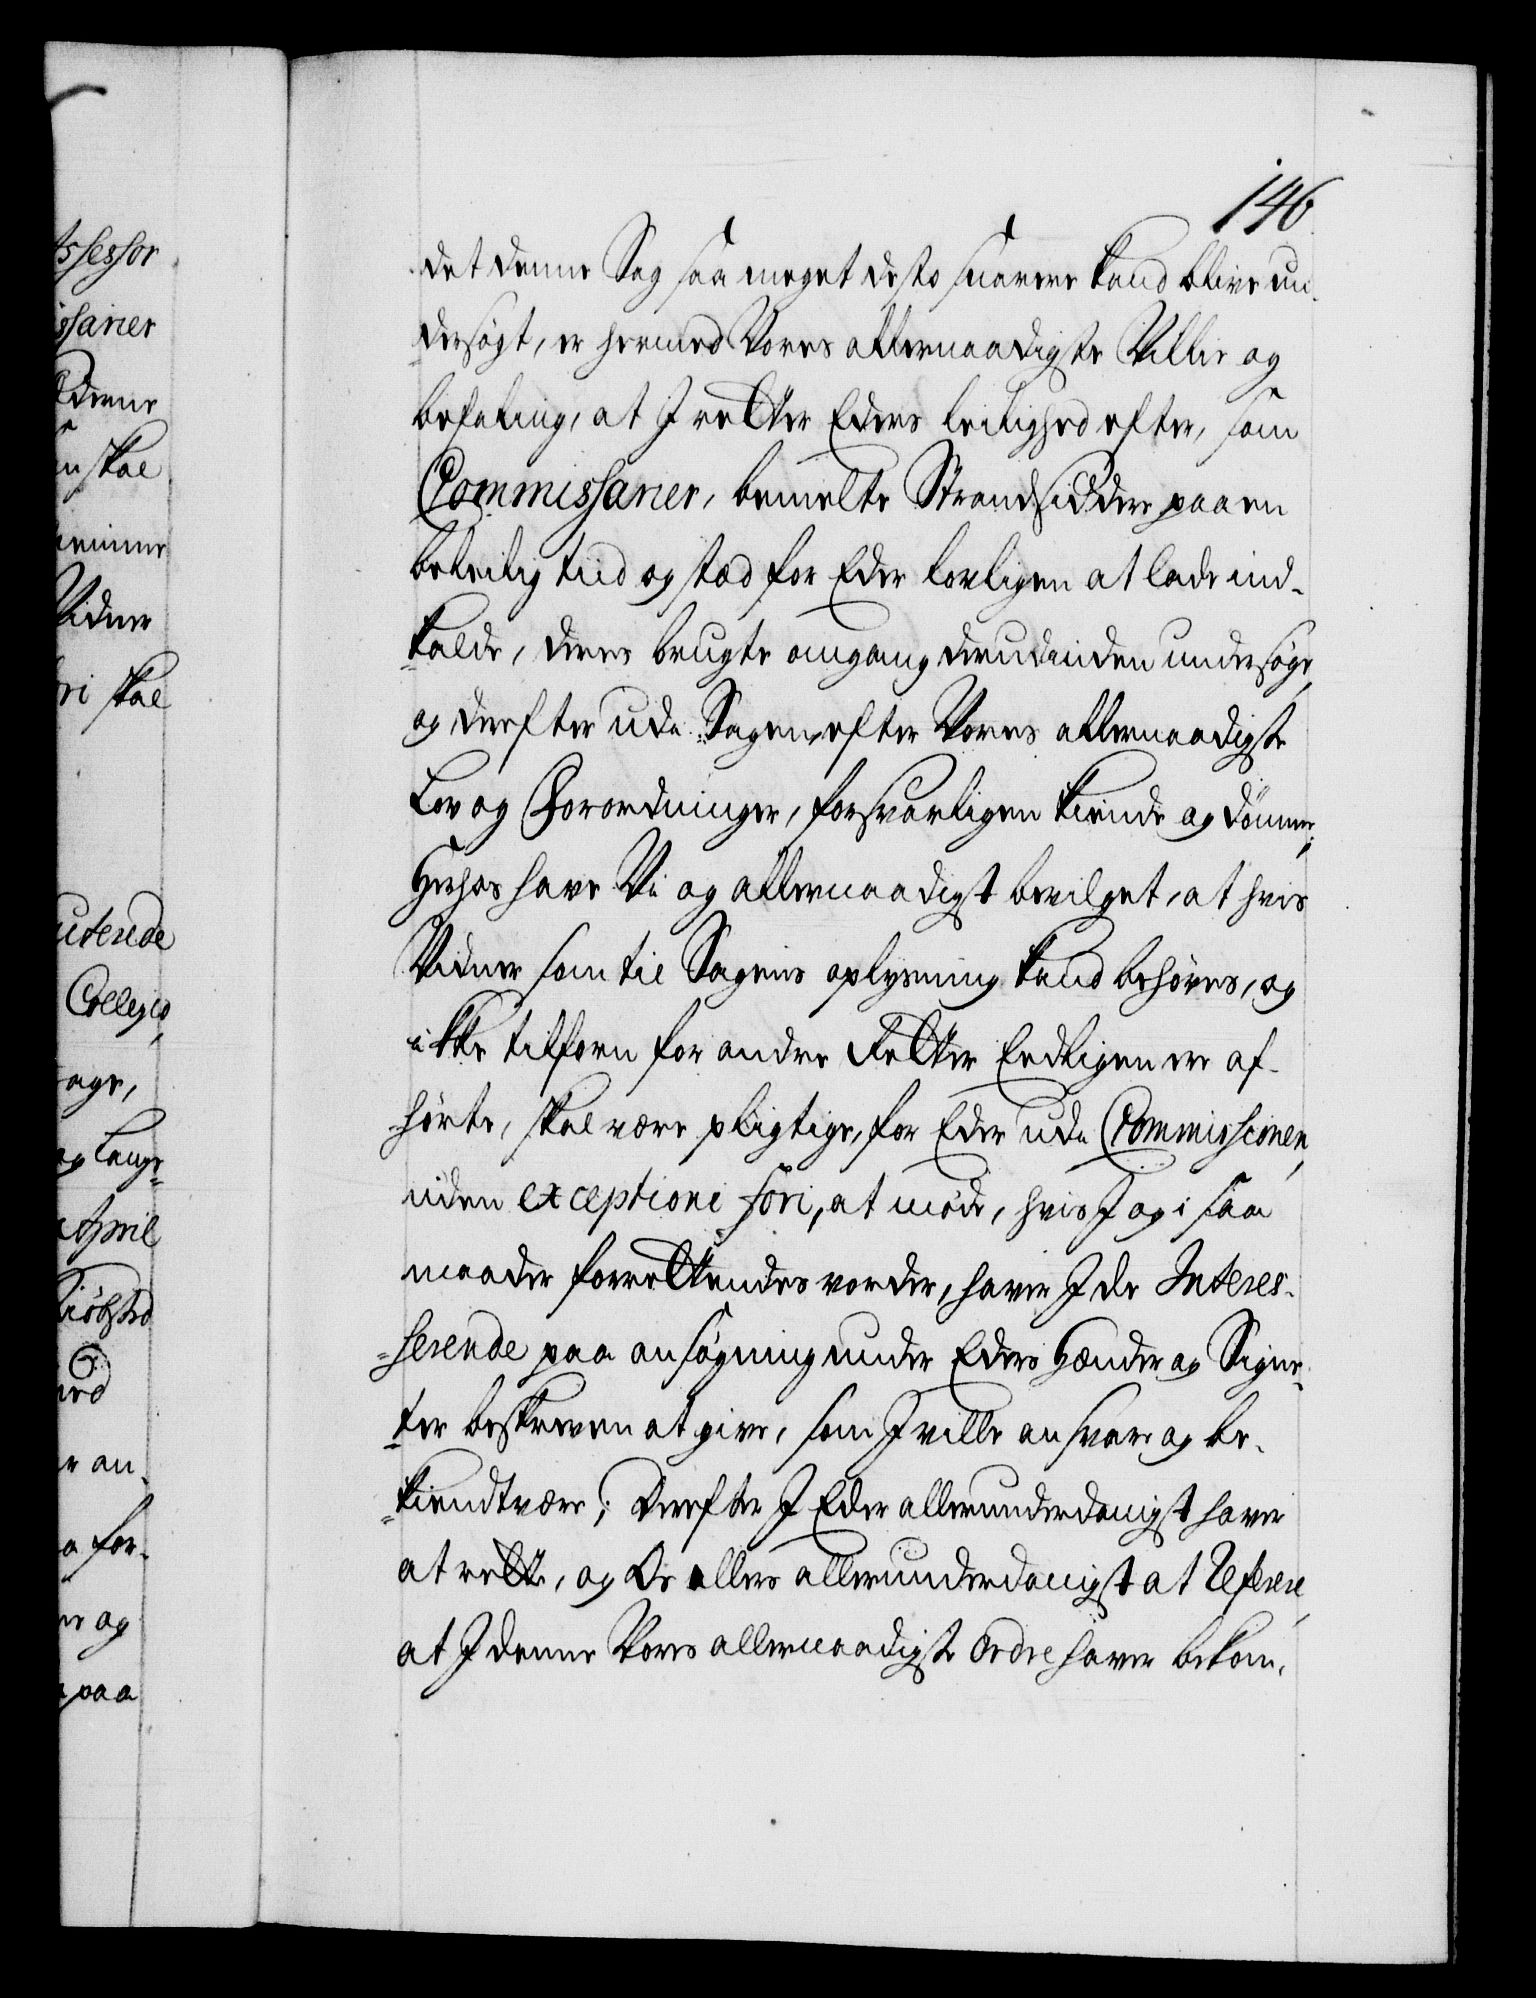 146
det denne Sag saa meget desto snarere kand blive un-
dersøgt, er hermed Vores allernaadigste Villie og
befaling, at I retter Eders leilighed efter, som
Commissarier, bemelte Strandsiddere paa en
beleilig tiid og stæd for Eder lovligen at lade ind-
kalde, deres brugte omgang derudinden undersøge,
og derefter udi Sagen, efter Vores allernaadigste
Lov og Forordninger, forsvarligen kiende og dømme;
Herhos have Vi og allernaadigst bevilget, at hvis
Vidner som til Sagens oplysning kand behøves, og
ikke tilforn for andre Retter Eedligen ere af-
hørte, skal være pligtige, for Eder udi Commissionen,
uden exceptione fori, at møde, hvis I og i saa
maader forrettendes vorder, haver I de Interes-
serende paa ansøgning under Eders Hænder og Signe-
ter beskreven at give, som I ville ansvare og be-
kiendt være; Derefter I Eder allerunderdanigst haver
at rette, og Os ellers allerunderdanigst at Referere,
at I denne Vores allernaadigste Ordre haver bekom-
ssessor
issarier
n skal
Vidner
ri skal
uterede
Collegio,
age,
og Lauge
April
Kiøbsted
r an-
a for-
er og
paa